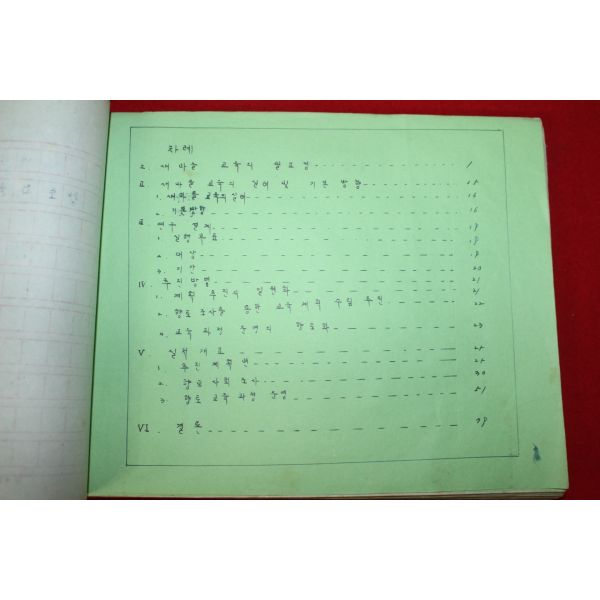 차례
I. 새마을 교육의 필요점 1
II 새마을 교육의 전여 및 기본방향 15
1. 새마을 교육의 참여 16
2. 기본방향 16
III. 연구 문제 19
1. 실행 19
2. 대상 19
3. 기간 20
IV. 추진방법 21
1. 계획 추진의 일원화 21
2. 향토 조사를 통한 교육계획 수립 추진 22
3. 교육과정 운영의 향토화 23
V. 실적 개요 25
1. 추진 계획 25
2. 향토 사회 조사 30
3. 향토 교육과정 운영 51
VI. 결론 78